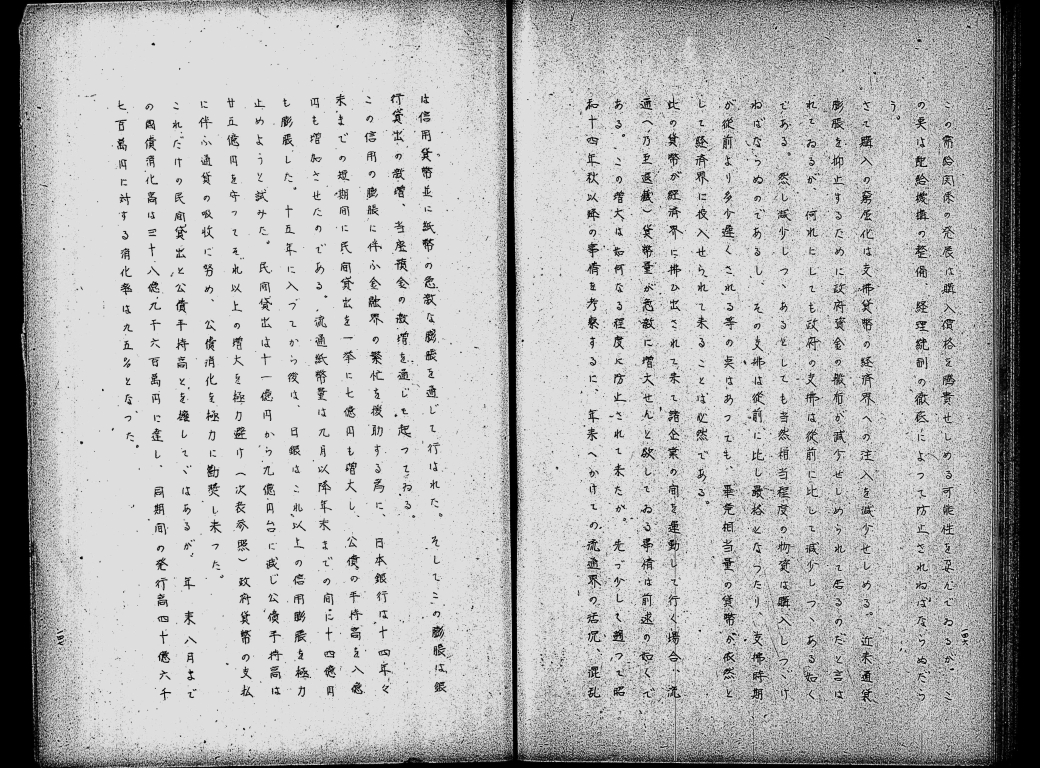 この需給関係の発展は購入価格を騰貴せしめる可能性を及んでゐるが、こ
の実は配給機構の整備、経理統制の徹底によつて防止されねばならぬだら
う。
さて購入の窮屈化は支払貨幣の経済界への注入を減少せしめる。近来通貨
膨脹を抑止するために政府資金の撒布が減少せしめられて居るのだと言は
れてゐるが、何れにしても政府の支払は従前に比して減少しつゝある如く
である。然し減少しつゝあるとしても当然相当程度の物資は購入しつゞけ
ねばならぬのであるし、その支払は従前に比し厳格となつたり、支払時期
が従前より多少遅くされる等の点はあつても、畢竟相当量の貨幣が依然と
して経済界に投入せられて来ることは必然である。
此の貨幣が経済界に払ひ出されて来て諸企業の間を運動して行く場合、流
通へ(乃至退蔵)貨幣量が急激に増大せんと欲してゐる事情は前述の如くで
ある。この増大は如何なる程度に防止されて来たか。先づ少しく遡つて昭
和十四年秋以降の事情を考察するに、年末へかけての流通界の活況、混乱
は信用貨幣並に紙幣の急激な膨脹を通じて行はれた。そしてこの膨脹は銀
行貸出の激増、当座預金の激増を通じて起つてゐる。
この信用の膨脹に伴ふ金融界の繁忙を援助する為に、日本銀行は十四年々
末までの短期間に民間貸出を一挙に七億円も増大し、公債の手持高を八億
円も増加させたのである。流通紙幣量は九月以降年末までの間に十四億円
も膨脹した。十五年に入つてから後は、日銀はこれ以上の信用膨脹を極力
止めようと試みた。民間貸出は十一億円から九億円台に減じ公債手持高は
廿五億円を守つてそれ以上の増大を極力避け(次表参照)政府貨幣の支払
に伴ふ通貨の吸收に努め、公債消化を極力に勧奨し来つた。
これだけの民間貸出と公債手持高とを擁してゞはあるが、年 末八月まで
の国債消化高は三十八億九千六百萬円に達し、同期間の発行高四十億六千
七百萬円に対する消化率は九五%となつた。